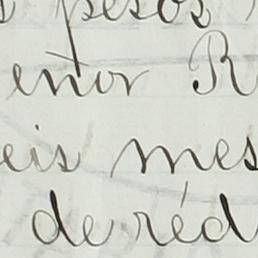 pesos
enor R
eis mes
de réd